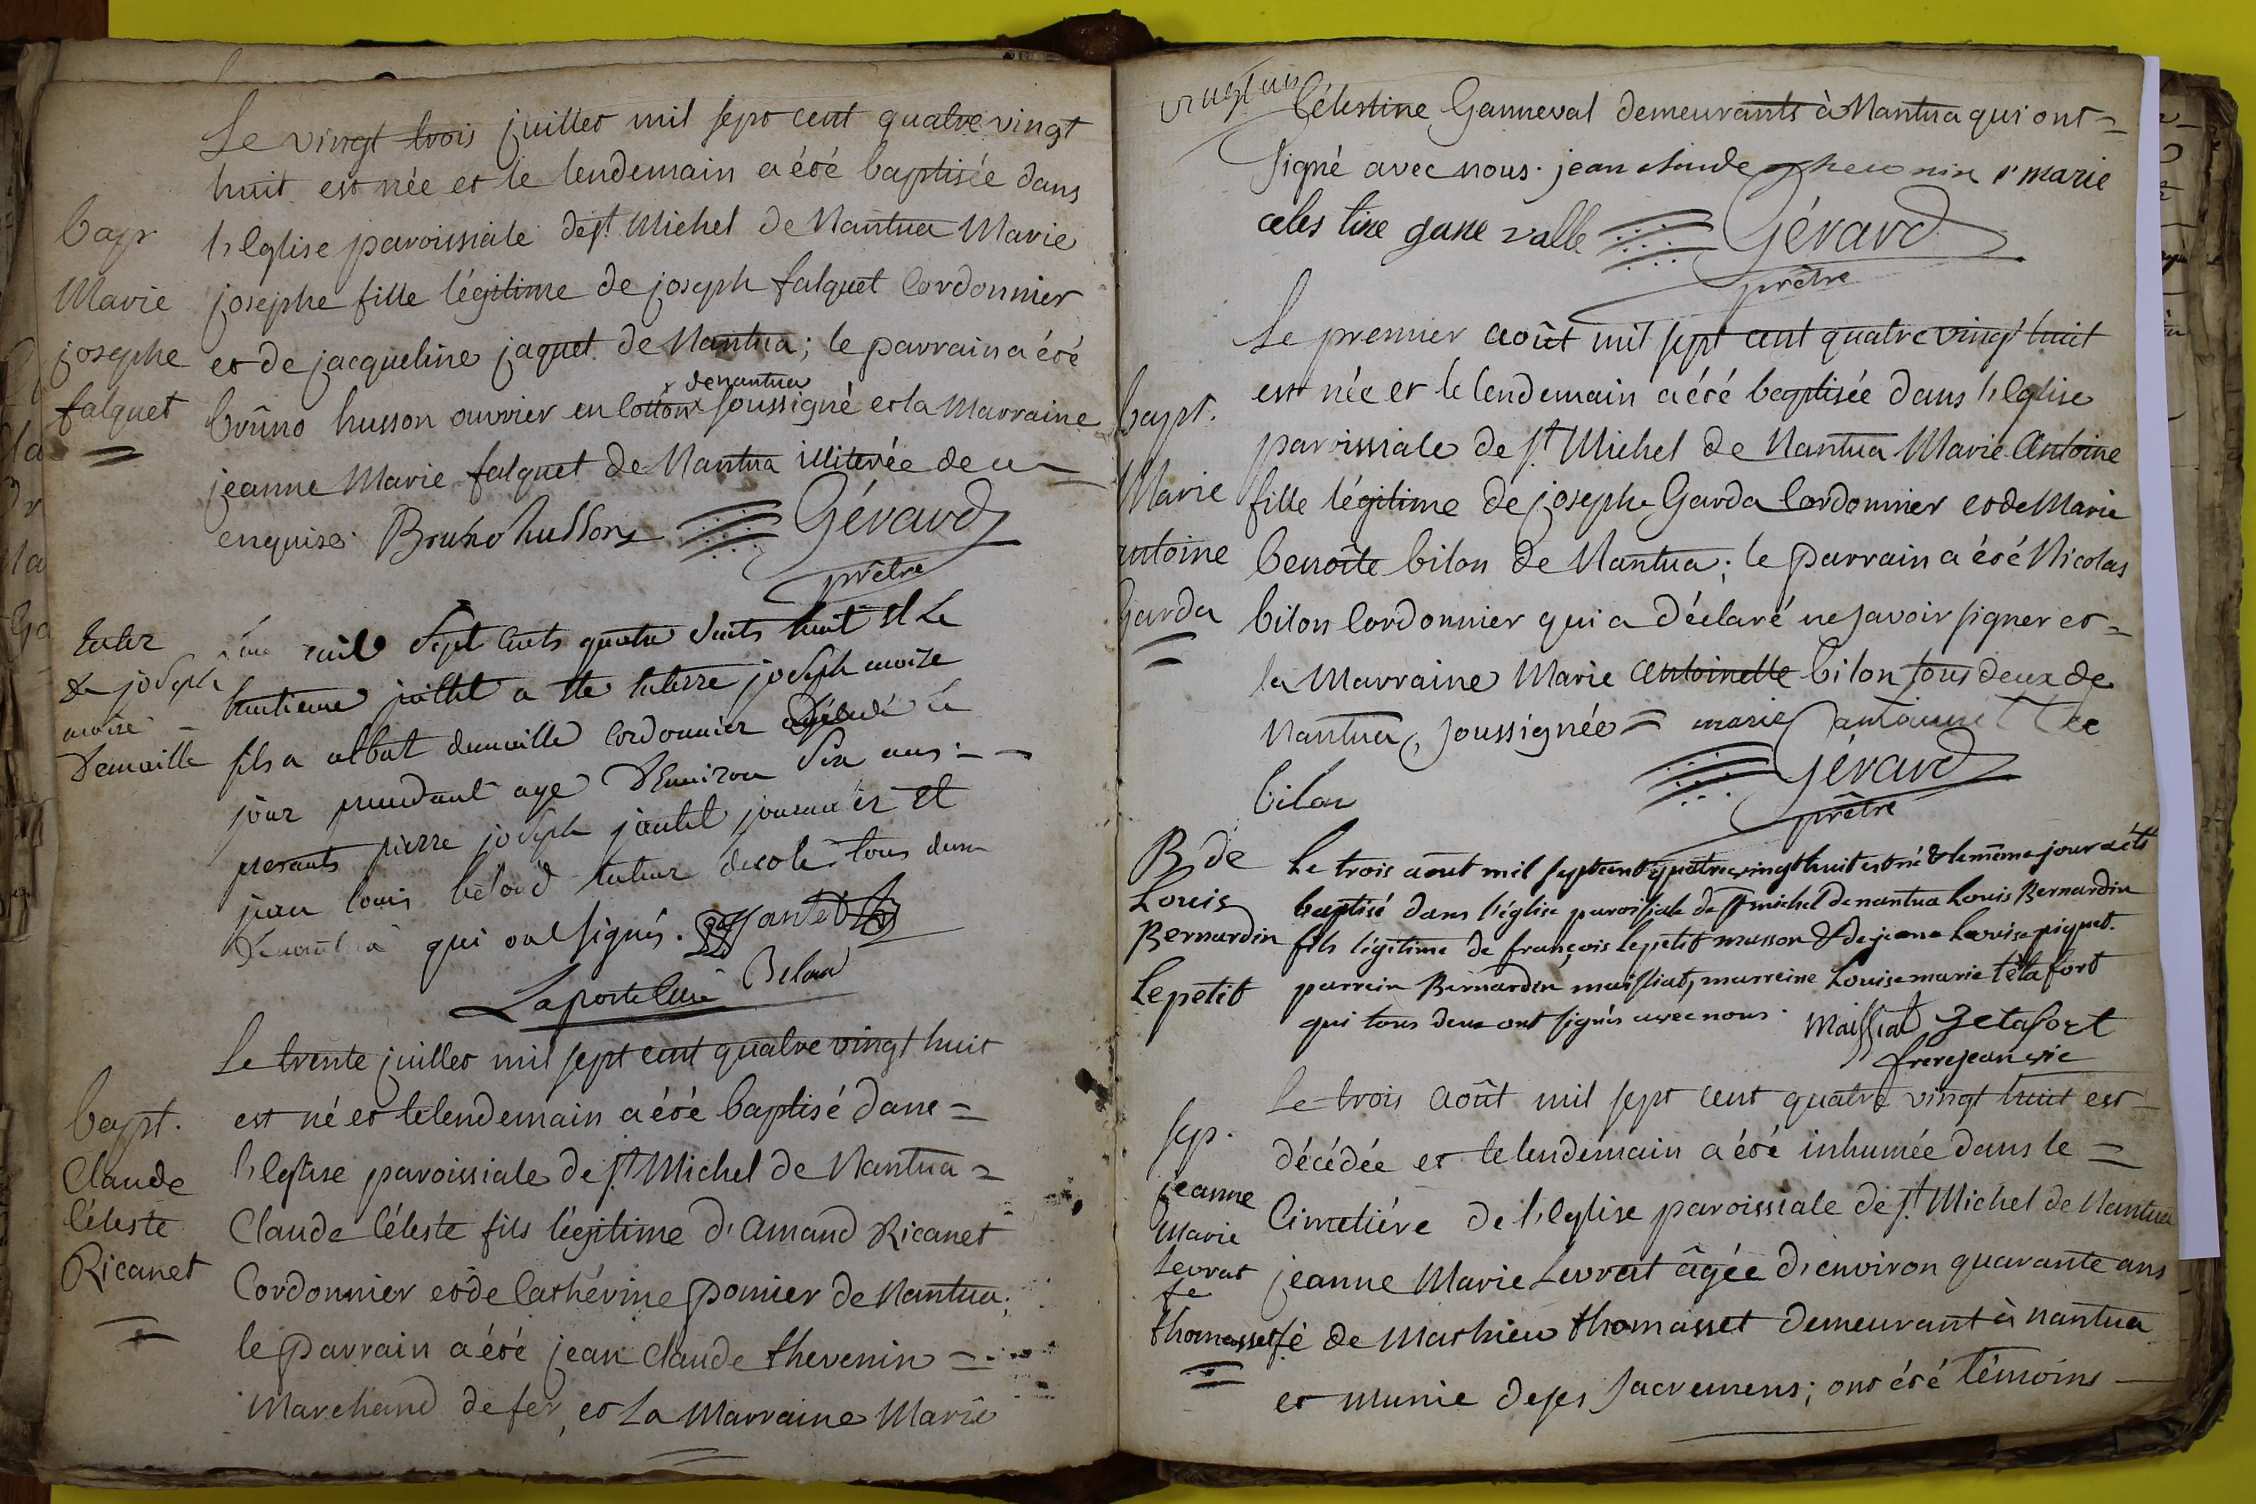 Le vingt trois juillet mil sept cent quatre vingt
huit est née et le lendemain a été baptisée dans
bapt
l'Eglise paroissiale de st Michel de Nantua Marie
Marie
josephe fille légitime de joseph falquet Cordonnier
josephe
et de jacqueline jaquet de Nantua; le parrain a été
falquet
de nantua
brûno husson ouvrier en Cotton soussigné et la Marraine
jeanne Marie falquet de Nantua illiterée de ce
enquise. Bruno husson Gérard
prêtre
enter
de joseph
moïse
Demaille
mil Sept Cents quatre vints huit et Le
huitieme juillet a ete enterre joseph moïse
fils a albert demaille Cordonnier décédé le
jour precedant age D'Environ Six ans
presants pierre joseph jantet journaier et
jean louis beloud recteur decole tous deux
De nantua qui ont signés. Jantet
Laposte Curé Belou
Le trente juillet mil sept cent quatre vingt huit
bapt.
est né et le lendemain a été baptisé dans =
Claude
l'Eglise paroissiale de st Michel de Nantua =
Céleste
Claude Céleste fils légitime d'Amand Ricanet
Ricanet
Cordonnier et de Cathérine pomier de Nantua;
le parrain a été jean Claude thevenin =
Marchand de fer, et La Marraine Marie
vingt un
Célestine Ganneval demeurants à Nantua qui ont =
signé avec nous. jean claude thevenin marie
celes tine gane valle Gérard
prêtre
Le premier août mil sept cent quatre vingt huit
est née et le lendemain a été baptisée dans l'Eglise
bapt.
paroissiale de st Michel de Nantua Marie Antoine
Marie
fille légitime de joseph Garda Cordonnier et de Marie
antoine
benoîte bilon de Nantua; le parrain a été Nicolas
Garda
bilon Cordonnier qui a déclaré ne savoir signer et =
la Marraine Marie Antoinette bilon tous deux de
Nantua, soussignée = marie antoinette
bilon Gérard
prêtre
B de
Louis
Bernardin
Lepetit
Le trois aout mil sept cent quatrevingt huit est né & le même jour a été
baptisé dans l'église paroissiale de st michel de nantua Louis Bernardin
fils légitime de françois lepetit masson & de jeane Louise piquet.
parrein Bernardin maissiat, marreine Louise marie tétafort
qui tous deux ont signés avec nous. Maissiat Tetafort
frerejean vic
Le trois août mil sept cent quatre vingt huit est
sep.
décédée et le lendemain a été inhumée dans le =
jeanne
Marie
Cimetiére de l'Eglise paroissiale de st Michel de Nantua
Levrat
fe
jeanne Marie Levrat âgée d'environ quarante ans
thomasset
fe de Mathieu thomasset demeurant à nantua
et munie de ses sacremens; ont été témoins